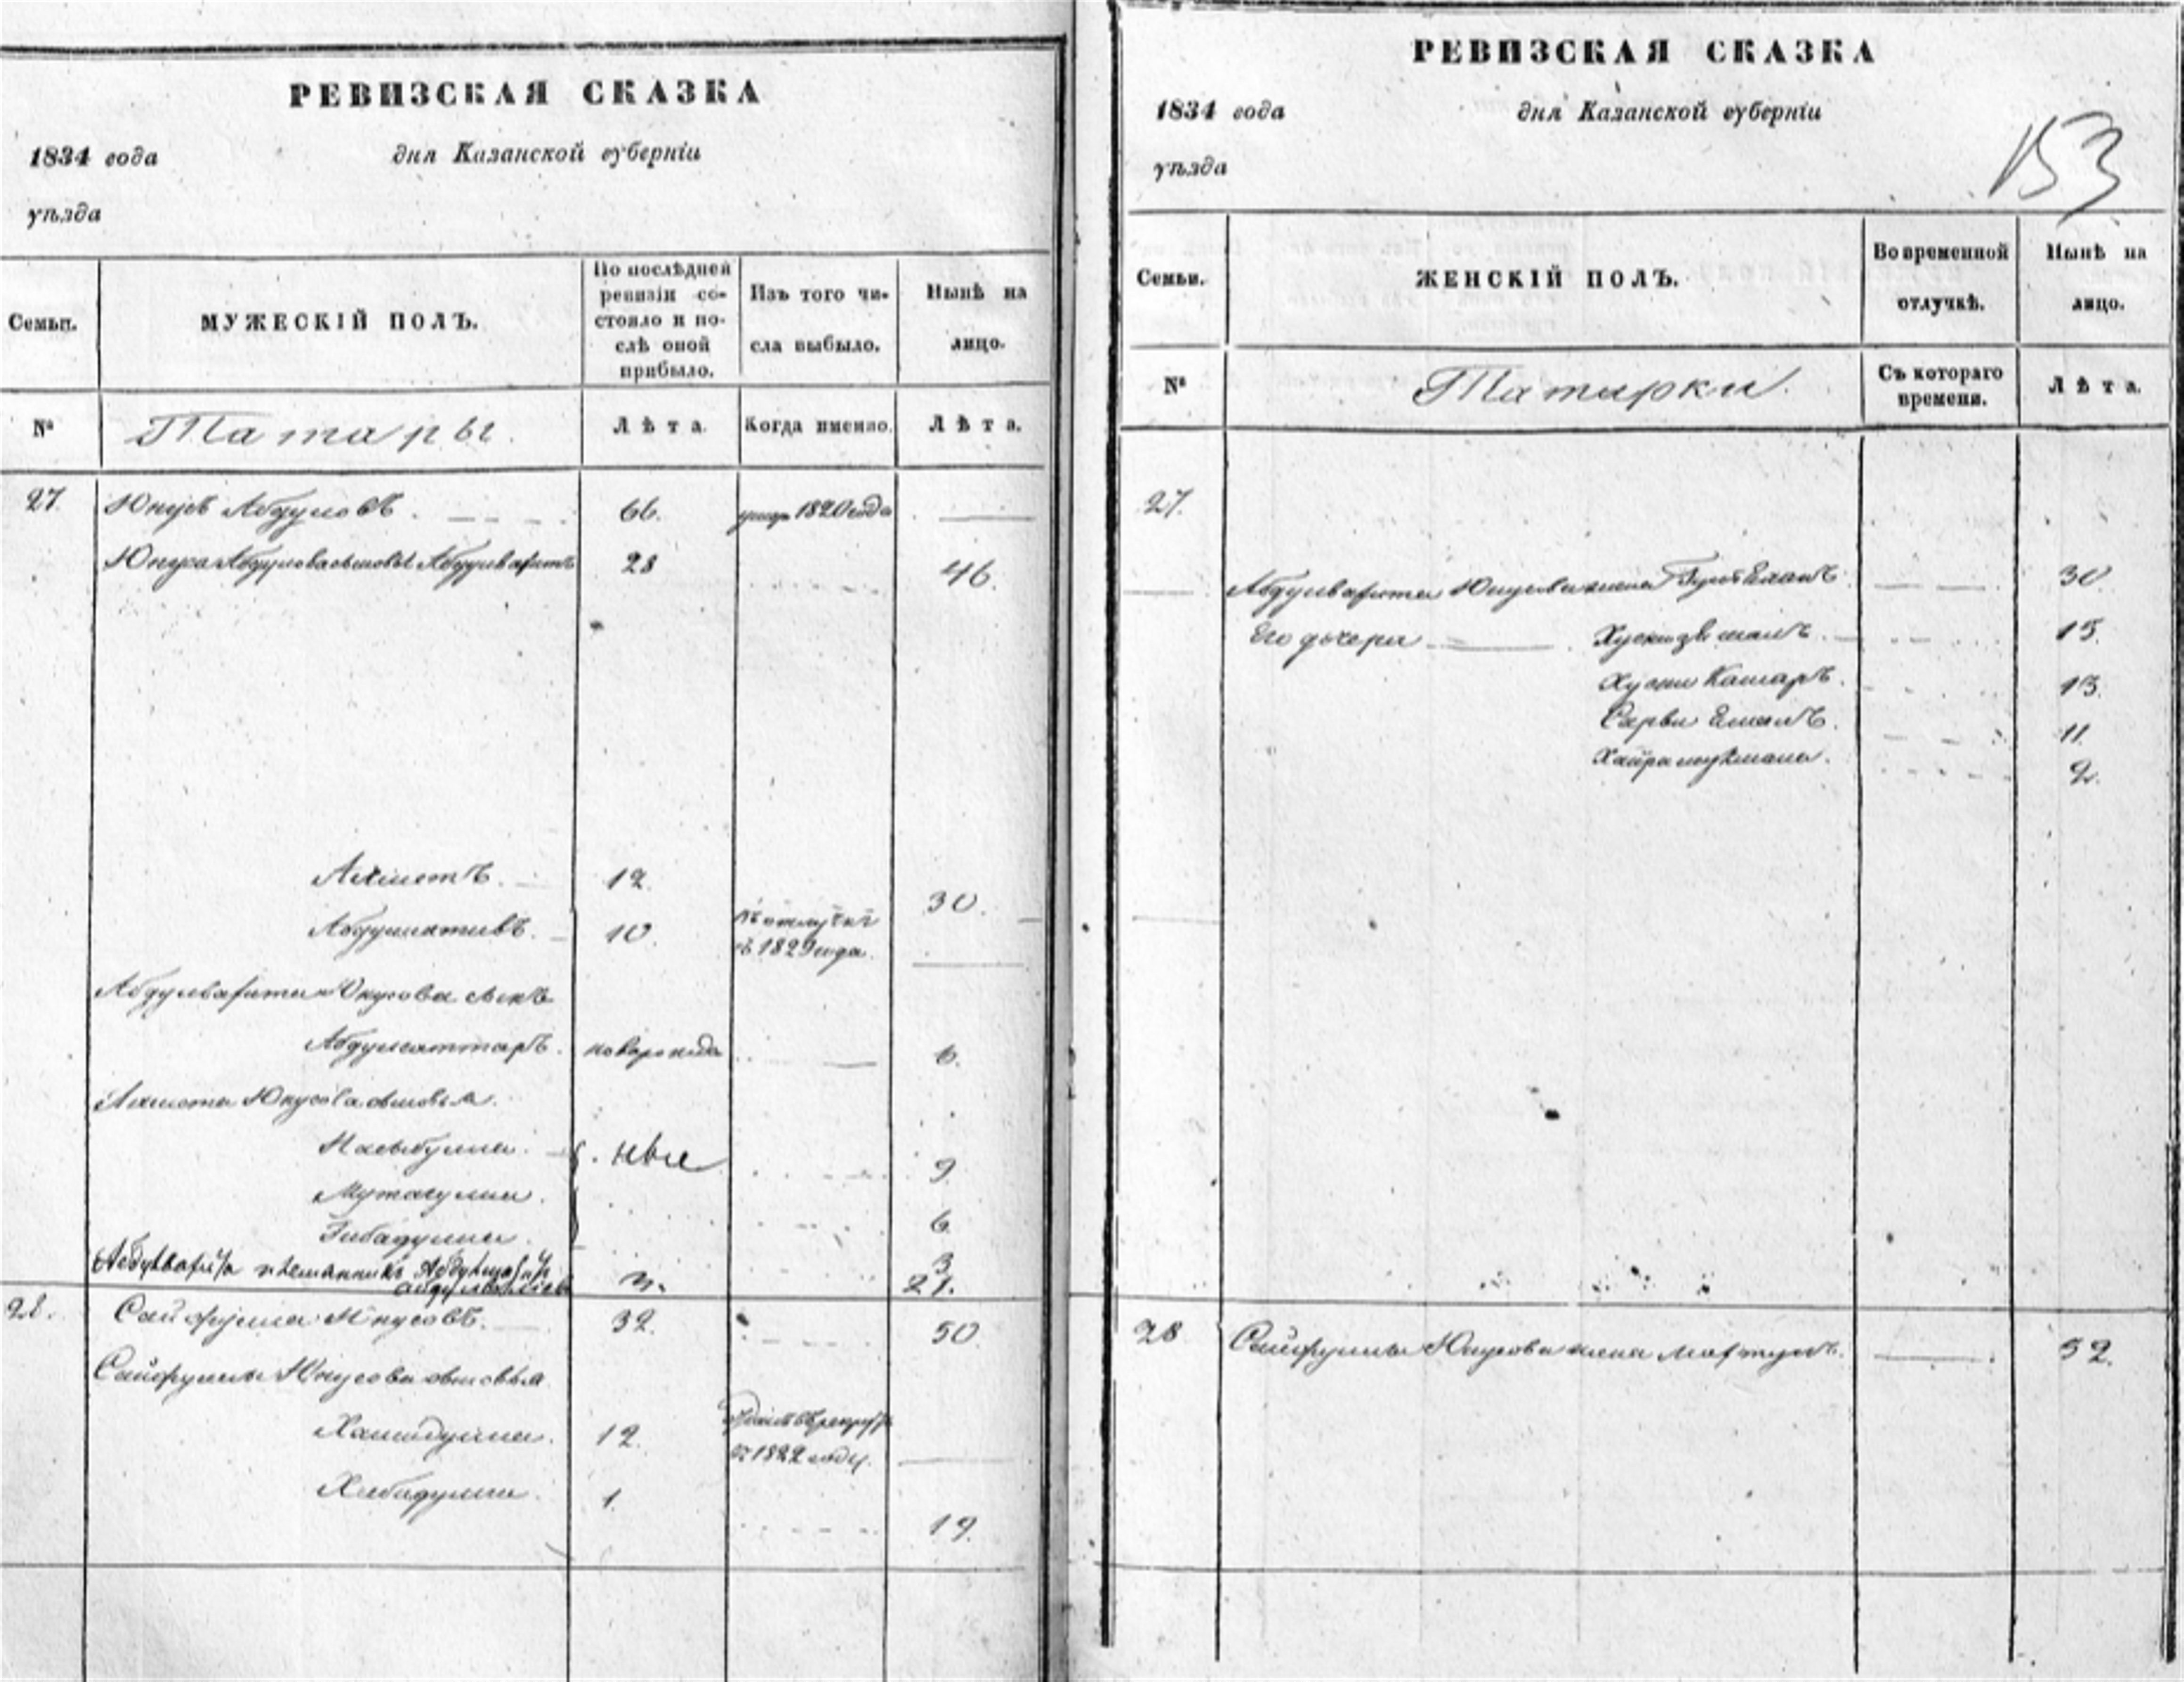 РЕВИЗСКАЯ СКАЗКА
1834 года дня Казанской губерніи
уѣзда
Семьи.
МУЖЕСКІЙ ПОЛЪ.
По послѣдней ревизіи со-
стояло и по-
слѣ оной
прибыло.
Изъ того чи-
сла выбыло.
Нынѣ на
лицо.
№
Татары.
Лѣта.
Когда именно.
Лѣта.
27. Юнусъ Абдуловъ. 66. умре 1820 года
Юнуса Абдулова сыновья Абдулвафитъ 28 46.
Ахметъ. 12. 30.
Абдуллативъ. 10. въ отлучкѣ
съ 1829 года.
Абдулвафита Юнусова сынъ
Абдулсаттаръ. новорожд 6.
Ахмета Юнусова сыновья.
9.
6.
3
племянникъ
21.
28. Сайфулла Юнусовъ. 32. 50
Сайфуллы Юнусова сыновья
Хамидулла. 12. отданъ въ рекруты
въ 1822 году.
Хибадулла. 1.
19.
РЕВИЗСКАЯ СКАЗКА
1834 года дня Казанской губерніи
уѣзда
153
Семьи.
ЖЕНСКІЙ ПОЛЪ.
Во временной
отлучкѣ.
Нынѣ на
лицо.
№
Татарки.
Съ котораго
времени.
Лѣта.
27.
Абдулвафита Юнусова жена 30
Его дочери 15.
Хусни Камаръ. 13.
Сарви 11.
2.
28 Сайфуллы Юнусова жена 52.